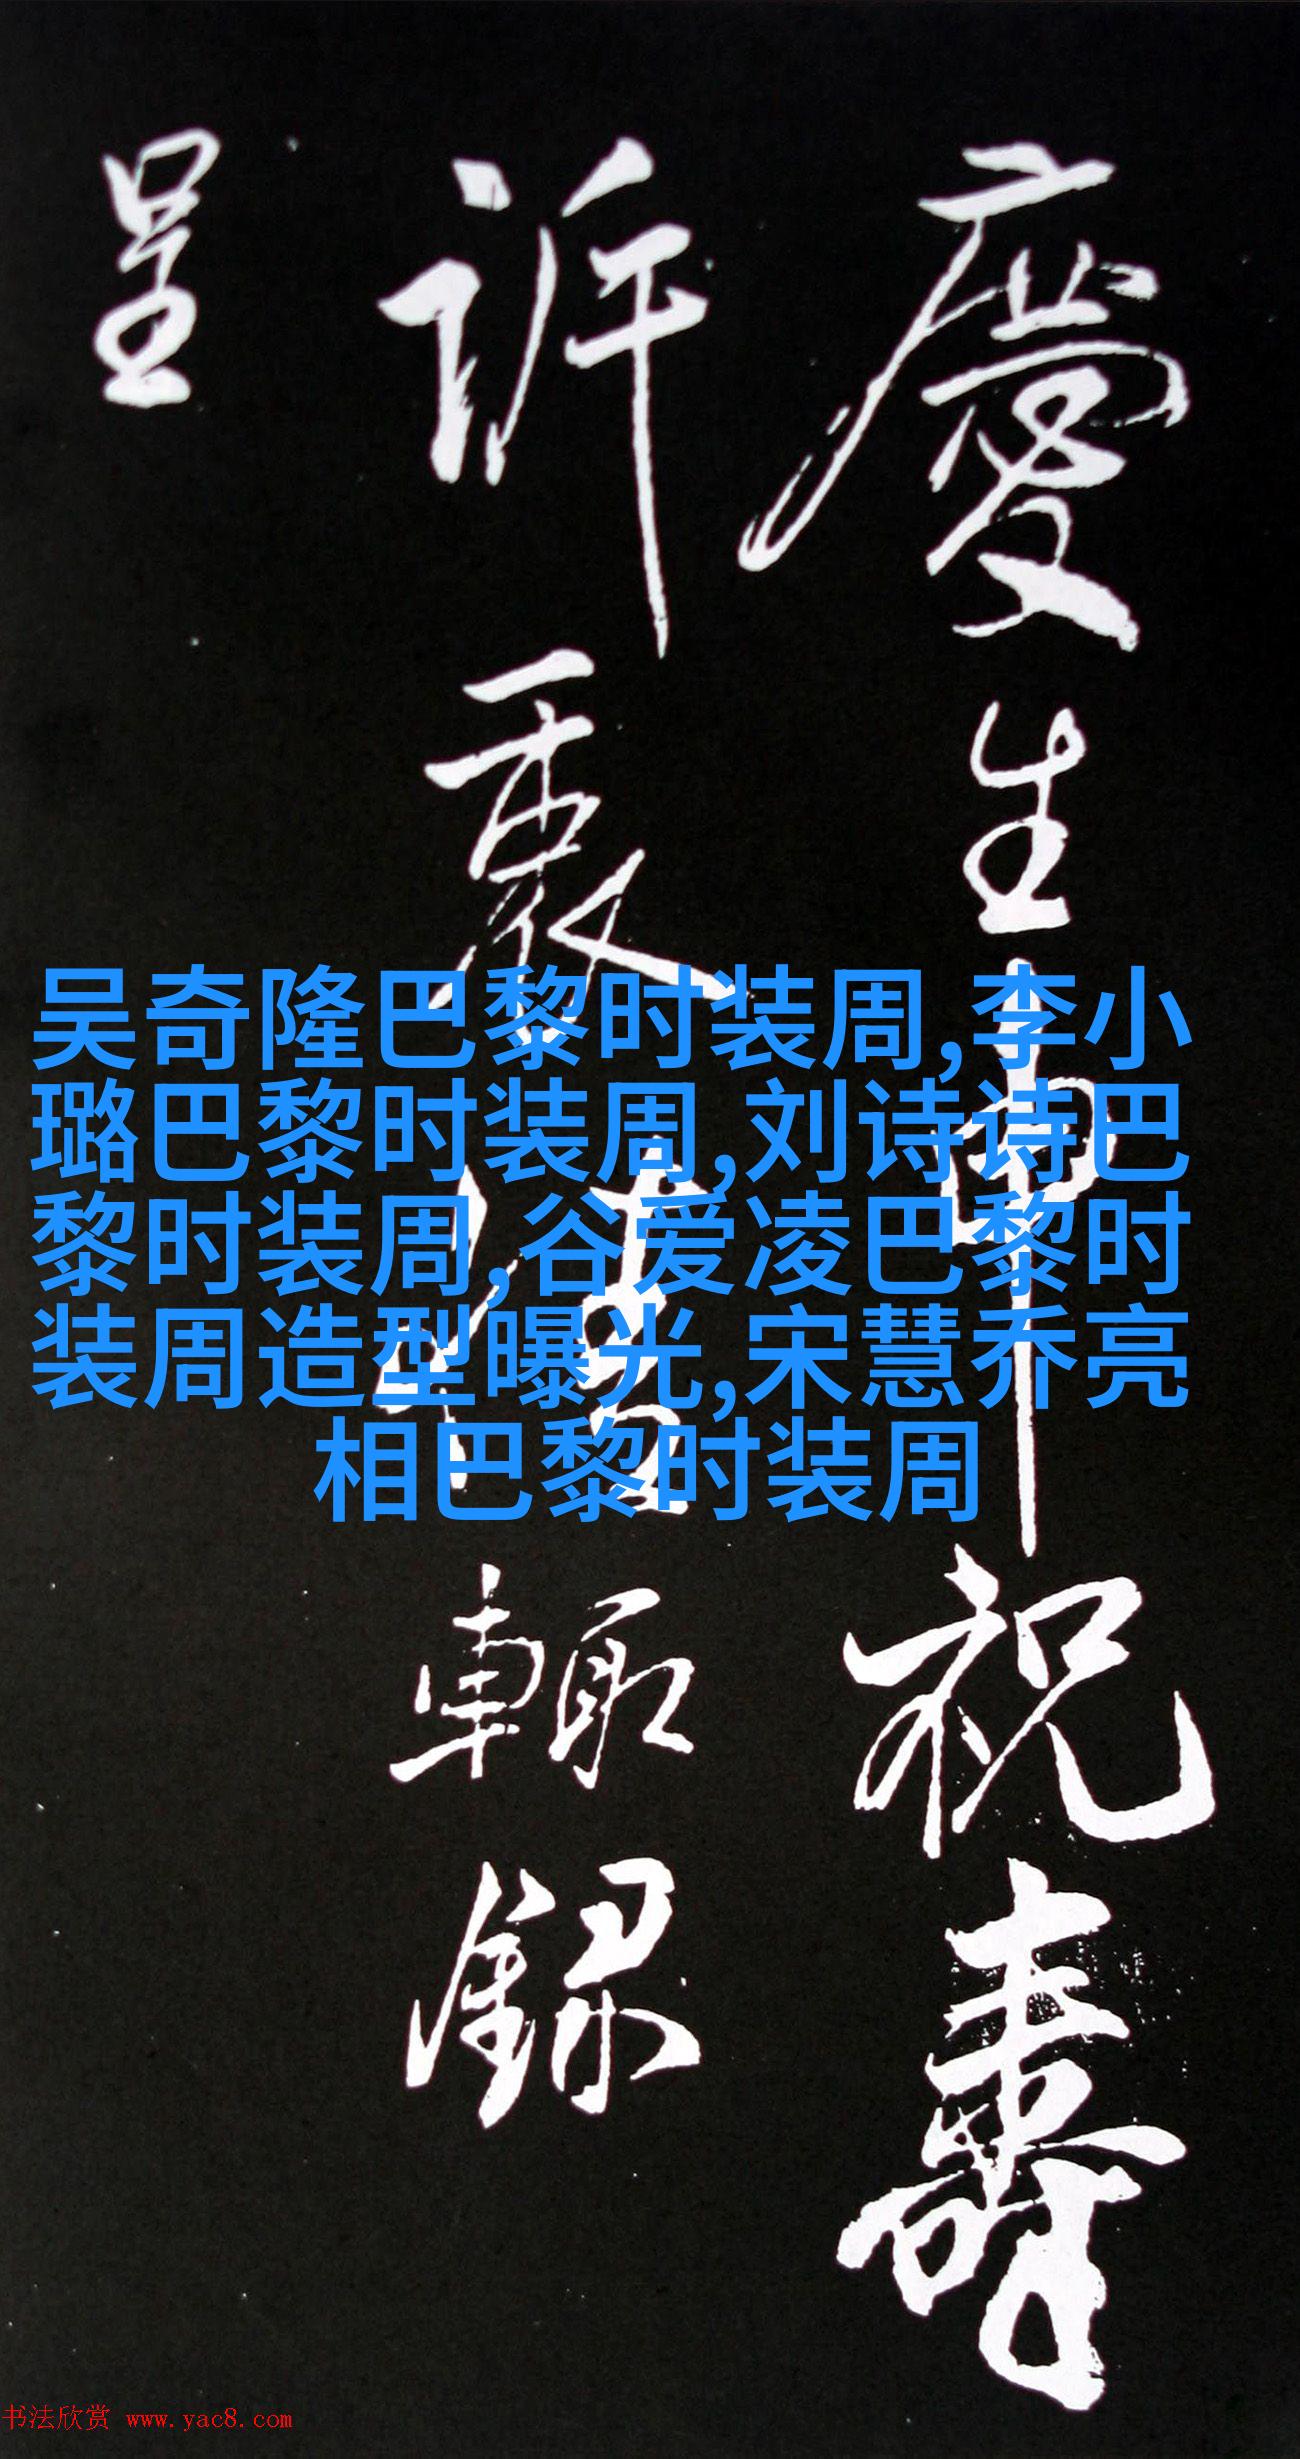 慶生申祝壽
訴衷情輒錄
呈
吴奇隆巴黎时装周,李小
璐巴黎时装周,刘诗诗巴
黎时装周,谷爱凌巴黎时
装周造型曝光,宋慧乔亮
相巴黎时装周
书法欣赏 www.yac8.com